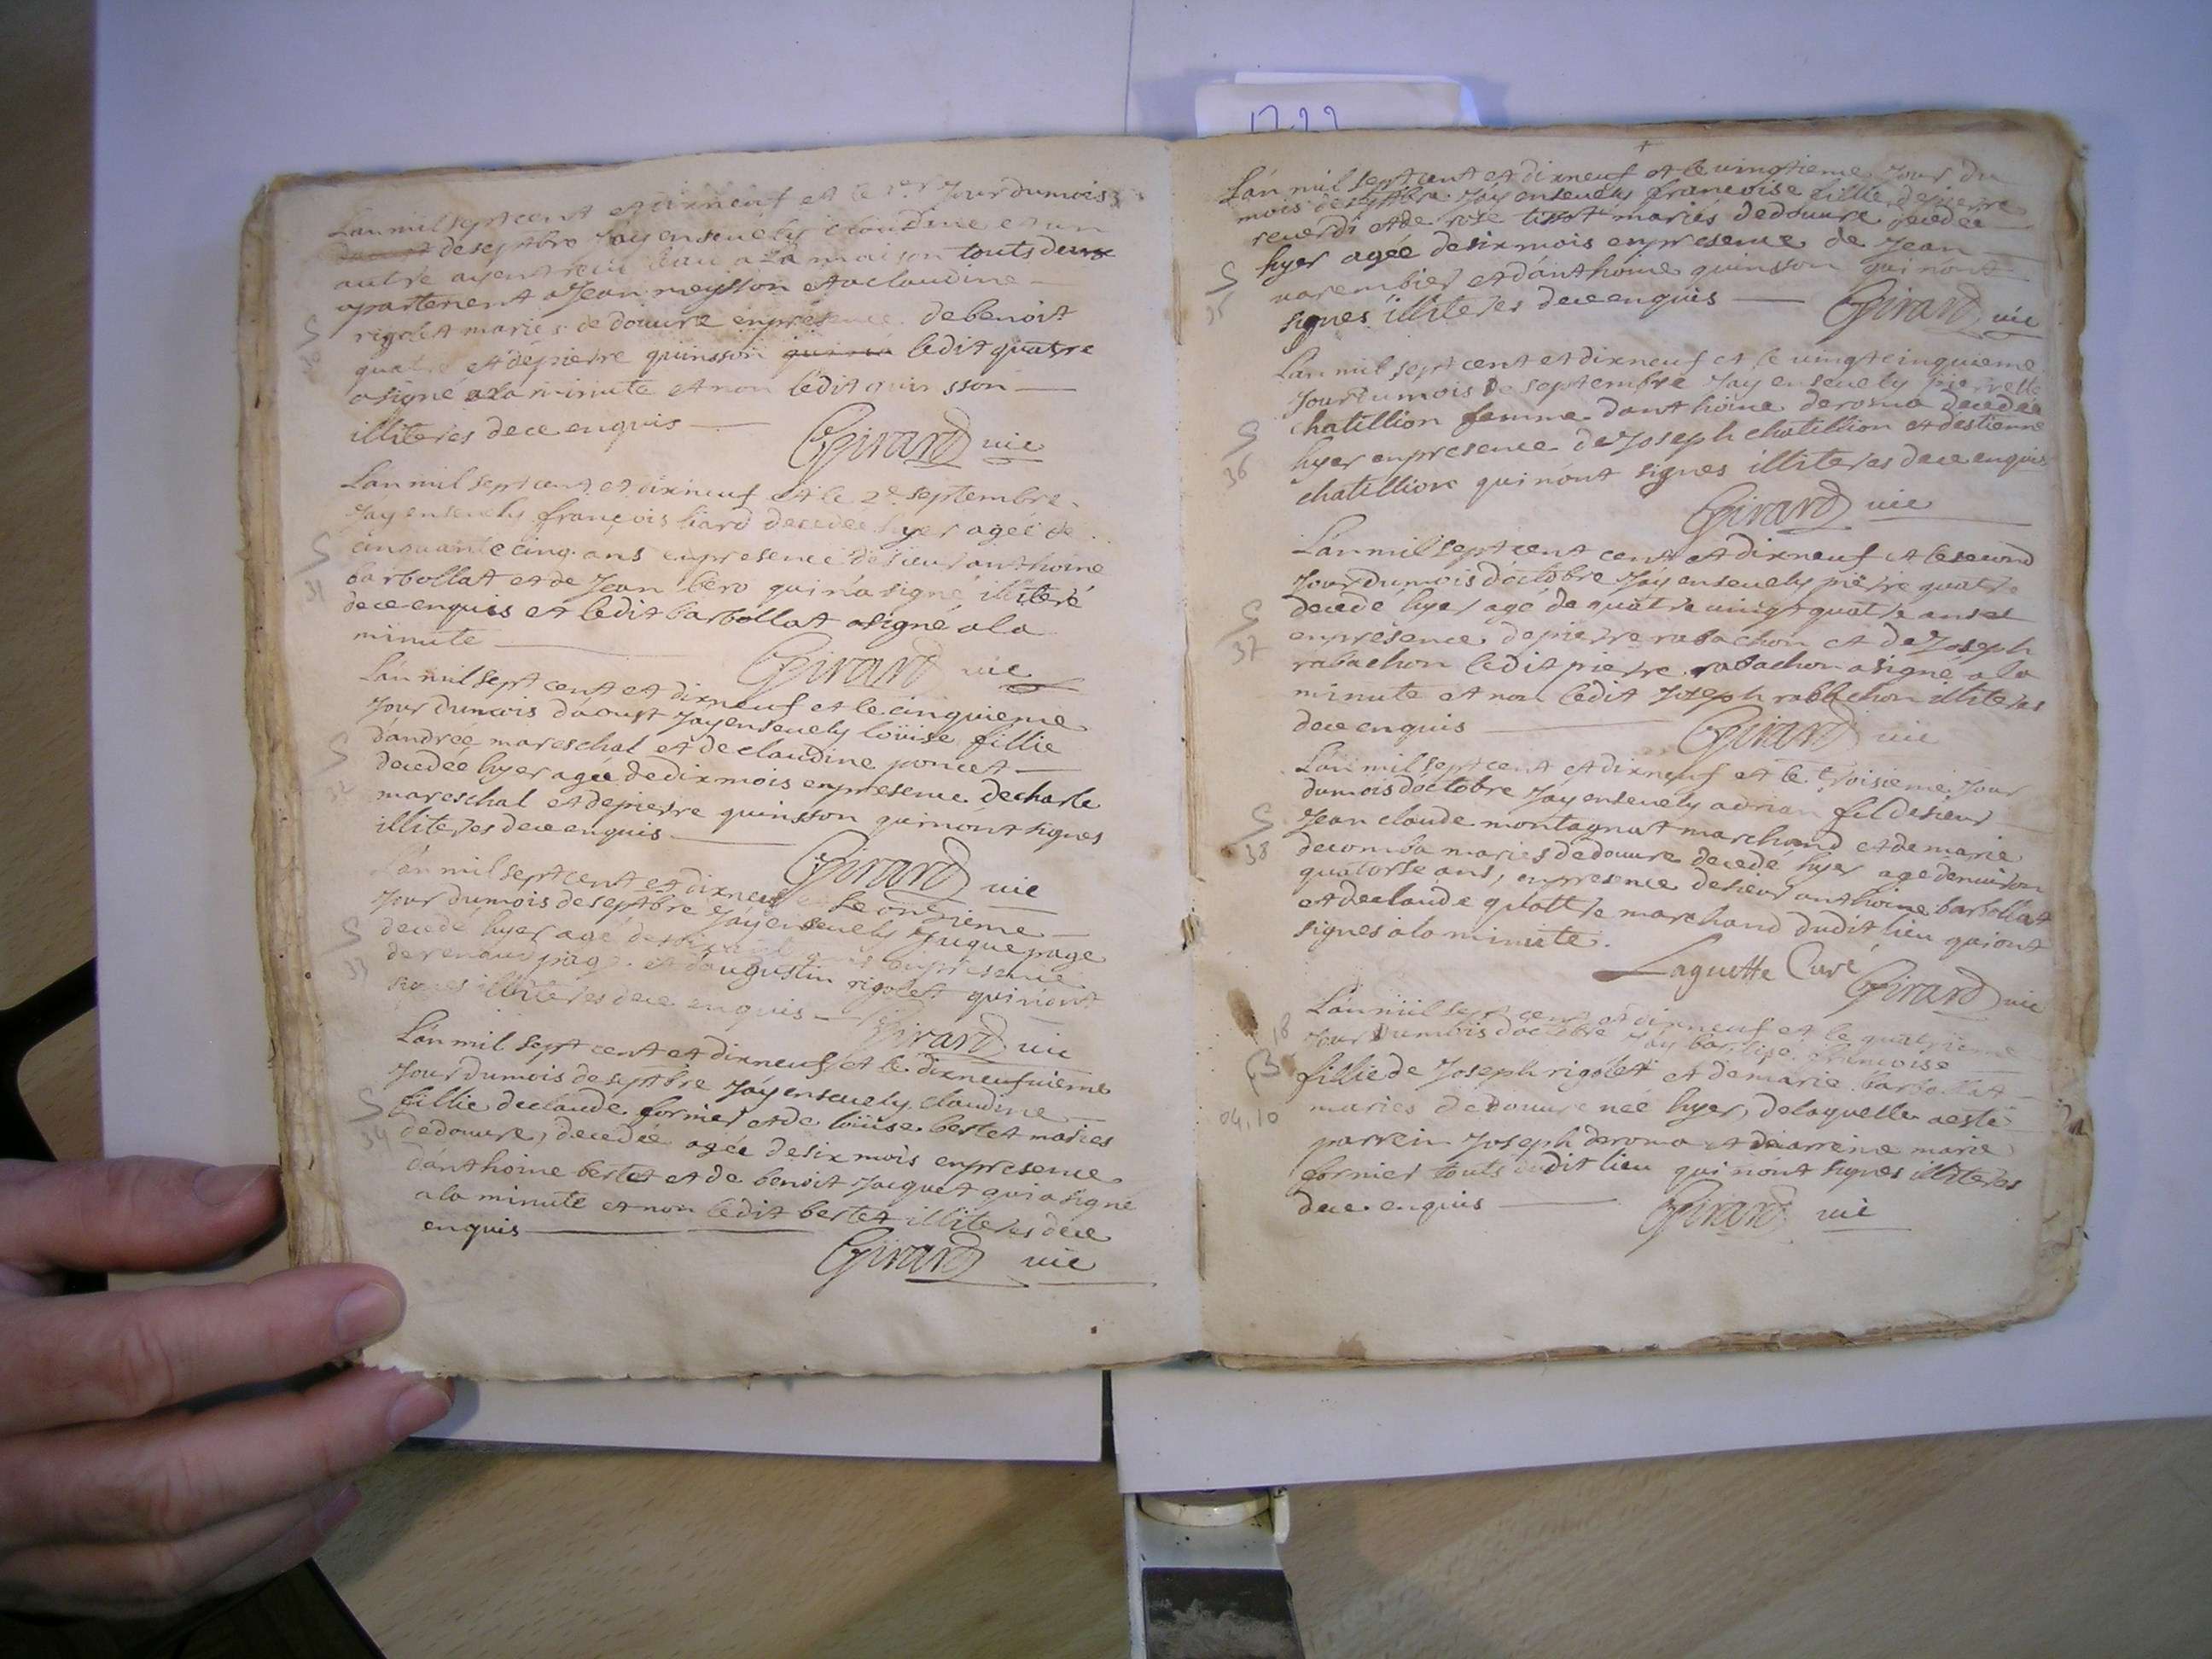 1722
Lan mil sept cent et dixneuf et le 1er Jour du mois
de septbre Jay ensevely claudine et un
autre ayent recu leau a la maison touts deux
apartenent a Jean meysson et a claudine
rigolet maries de douvre en présence de benoit
quatre et de pierre quinsson ledit quatre
a signé a la minute et non ledit quinsson
illiteres de ce enquis
Girard vic
30
Lán mil sept cent et dixneuf et le 2e septembre
Jay ensevely françois liard decedée hyer agée de
cinquante cinq ans en presence de sieur anthoine
barbollat et de Jean bero qui ná signé illiteré
de ce enquis et ledit barbollat a signé a la
minute
Girard vic
31
Lán mil sept cent et dixneuf et le cinquieme
Jour du mois daoust Jay ensevely loüise fillie
dándrée mareschal et de claudine poncet
decedée hyer agée de dix mois en presence de charle
mareschal et de pierre quinsson qui nónt signes
illiteres de ce enquis
Girard vic
32
Lán mil sept cent et dixneuf et le onzieme
Jour du mois de septbre Jáy ensevely hugue page
decedé hyer agé de ans en presence
de renaud page et daugustin rigolet qui nónt
signes illiteres de ce enquis
Girard vic
33
Lán mil sept cent et dixneuf et le dixneufuieme
Jour du mois de septbre Jáy ensevely claudine
fillie de claude fornier et de loüise bertet maries
de douvre, decedée agée de six mois en presence
dánthoine bertet et de benoit Jacquet qui a signé
a la minute et non ledit bertet illiteres de ce
enquis
Girard vic
34
Lán mil sept cent et dixneuf et le vingtieme Jour du
mois de septbre Jáy ensevely francoise fillie de pierre
reverdi et de rose tissot mariés de douvre decedée
hyer agée de six mois en presence de Jean
varembier et dánthoine quinsson qui nónt
signés illiteres de ce enquis
Girard vic
35
Lan mil sept cent et dixneuf et le vingt cinquieme
Jour du mois de septembre Jay ensevely pierrette
chatillion femme danthoine deroma decedée
hyer en presence de Joseph chatillion et déstienne
chatillion qui nónt signes illiteres de ce enquis
Girard vic
36
Lán mil sept cent cent et dixneuf et le second
Jour du mois dóctobre Jay ensevely pierre quatre
decedé hyer agé de quatre vingt quatre ans et
en présence de pierre rabachon et de Joseph
rabachon ledit pierre rabachon a signé a la
minute et non ledit Joseph rabbchon illiteres
de ce enquis
Girard vic
37
Lán mil sept cent et dixneuf et le troisieme Jour
du mois dóctobre Jáy ensevely adrian fil de sieur
Jean claude montagnat marchand et de marie
decomba maries de douvre decedé hyer age denviron
quatorse ans, en presence de sieur anthoine barbollat
et de claude quattre marchand dudit lieu qui ont
signes a la minute.
Laguette Curé Girard vic
38
Lán mil sept cent et dixneuf et le quatrieme
Jour du mois doctobre Jáy baptisé francoise
fillie de Joseph rigolet et de marie barbollat
maries de douvre nee hyer, de laquelle a esté
parrein Joseph deroma et marreine marie
fornier touts dudit lieu qui nont signes illiteres
de ce enquis
Girard vic
18
B
04.10